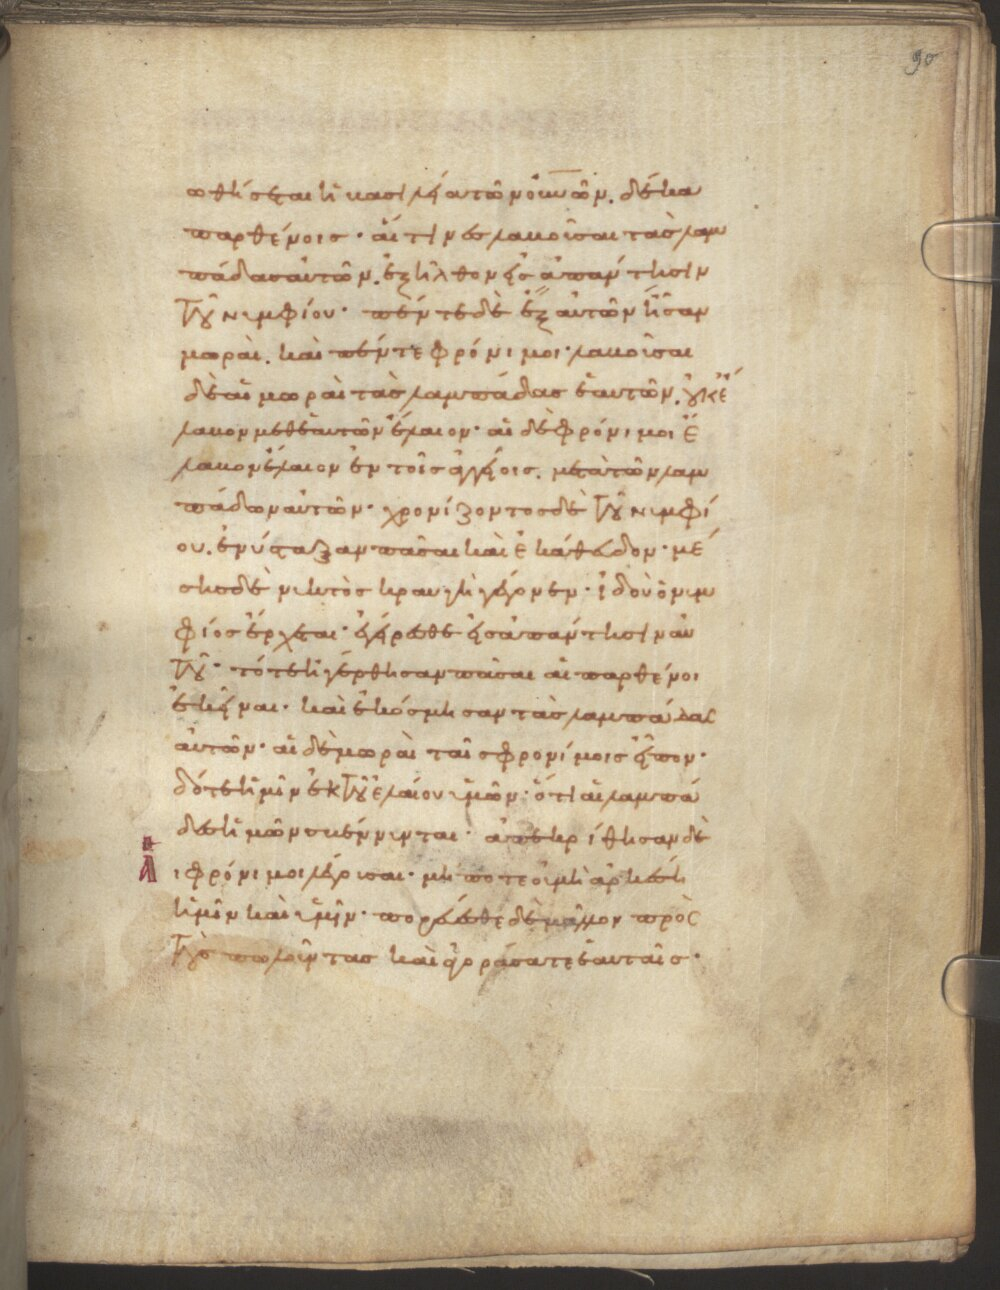 90
ωθήσεται ἡ βασιλεία τῶν οὐνῶν. δέκα
παρθένοις· αἵτινες λαβοῦσαι τὰς λαμ
πάδας αὐτῶν. ἐξῆλθον εἰς ἀπάντησιν
τοῦ νυμφίου· πέντε δὲ ἐξ αὐτῶν ἦσαν
μωραὶ. καὶ πέντε φρόνιμοι· λαβοῦσαι
δὲ αἱ μωραὶ τὰς λαμπάδας ἑαυτῶν. οὐκ ἔ
λαβον μεθ ἑαυτῶν ἔλαιον· αἱ δὲ φρόνιμοι ἔ
λαβον ἔλαιον ἐν τοῖς ἀγγείοις. μετὰ τῶν λαμ
πάδων αὐτῶν· χρονίζοντος δὲ τοῦ νυμφί
ου. ἐνύσταξαν πᾶσαι καὶ ἐκάθευδον· μέ
σης δὲ νυκτὸς κραυγὴ γέγονεν· ἰδοὺ ὁ νυμ
φίος ἔρχεται· ἐγείρεσθε εἰς ἀπάντησιν αὐ
τοῦ· τότε ἠγέρθησαν πᾶσαι αἱ παρθένοι
ἐκεῖναι· καὶ ἐκόσμησαν τὰς λαμπάδας
αὐτῶν· αἱ δὲ μωραὶ ταῖς φρονίμοις εἶπον·
δότε ἡμῖν ἐκ τοῦ ἐλαίου ὑμῶν· ὅτι αἱ λαμπά
δες ἡμῶν σβέννυνται· ἀπεκρίθησαν δὲ
αἱ φρόνιμοι λέγουσαι· μήποτε οὐ μὴ ἀρκέσῃ
ἡμῖν καὶ ὑμῖν· πορεύεσθε δὲ μᾶλλον πρὸς
τοὺς πωλοῦντας καὶ ἀγοράσατε ἑαυταῖς·